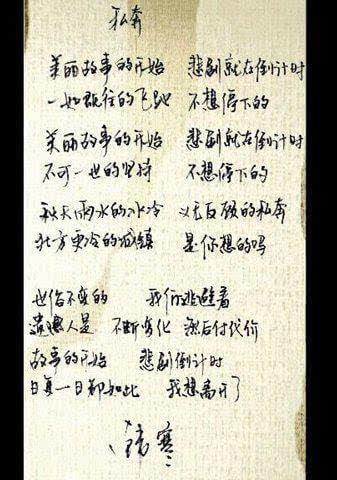 私奔
美丽故事的开始 悲剧就在倒计时
一如既往的飞驰 不想停下的
美丽故事的开始 悲剧就在倒计时
不可一世的坚持 不想停下的
秋天雨水的冰冷 义无反顾的私奔
北方更冷的城镇 是你想的吗
世俗不变的 我们逃避着
遗憾人是 不断变化 然后付代价
故事的开始 悲剧倒计时
日复一日都如此 我想离开了